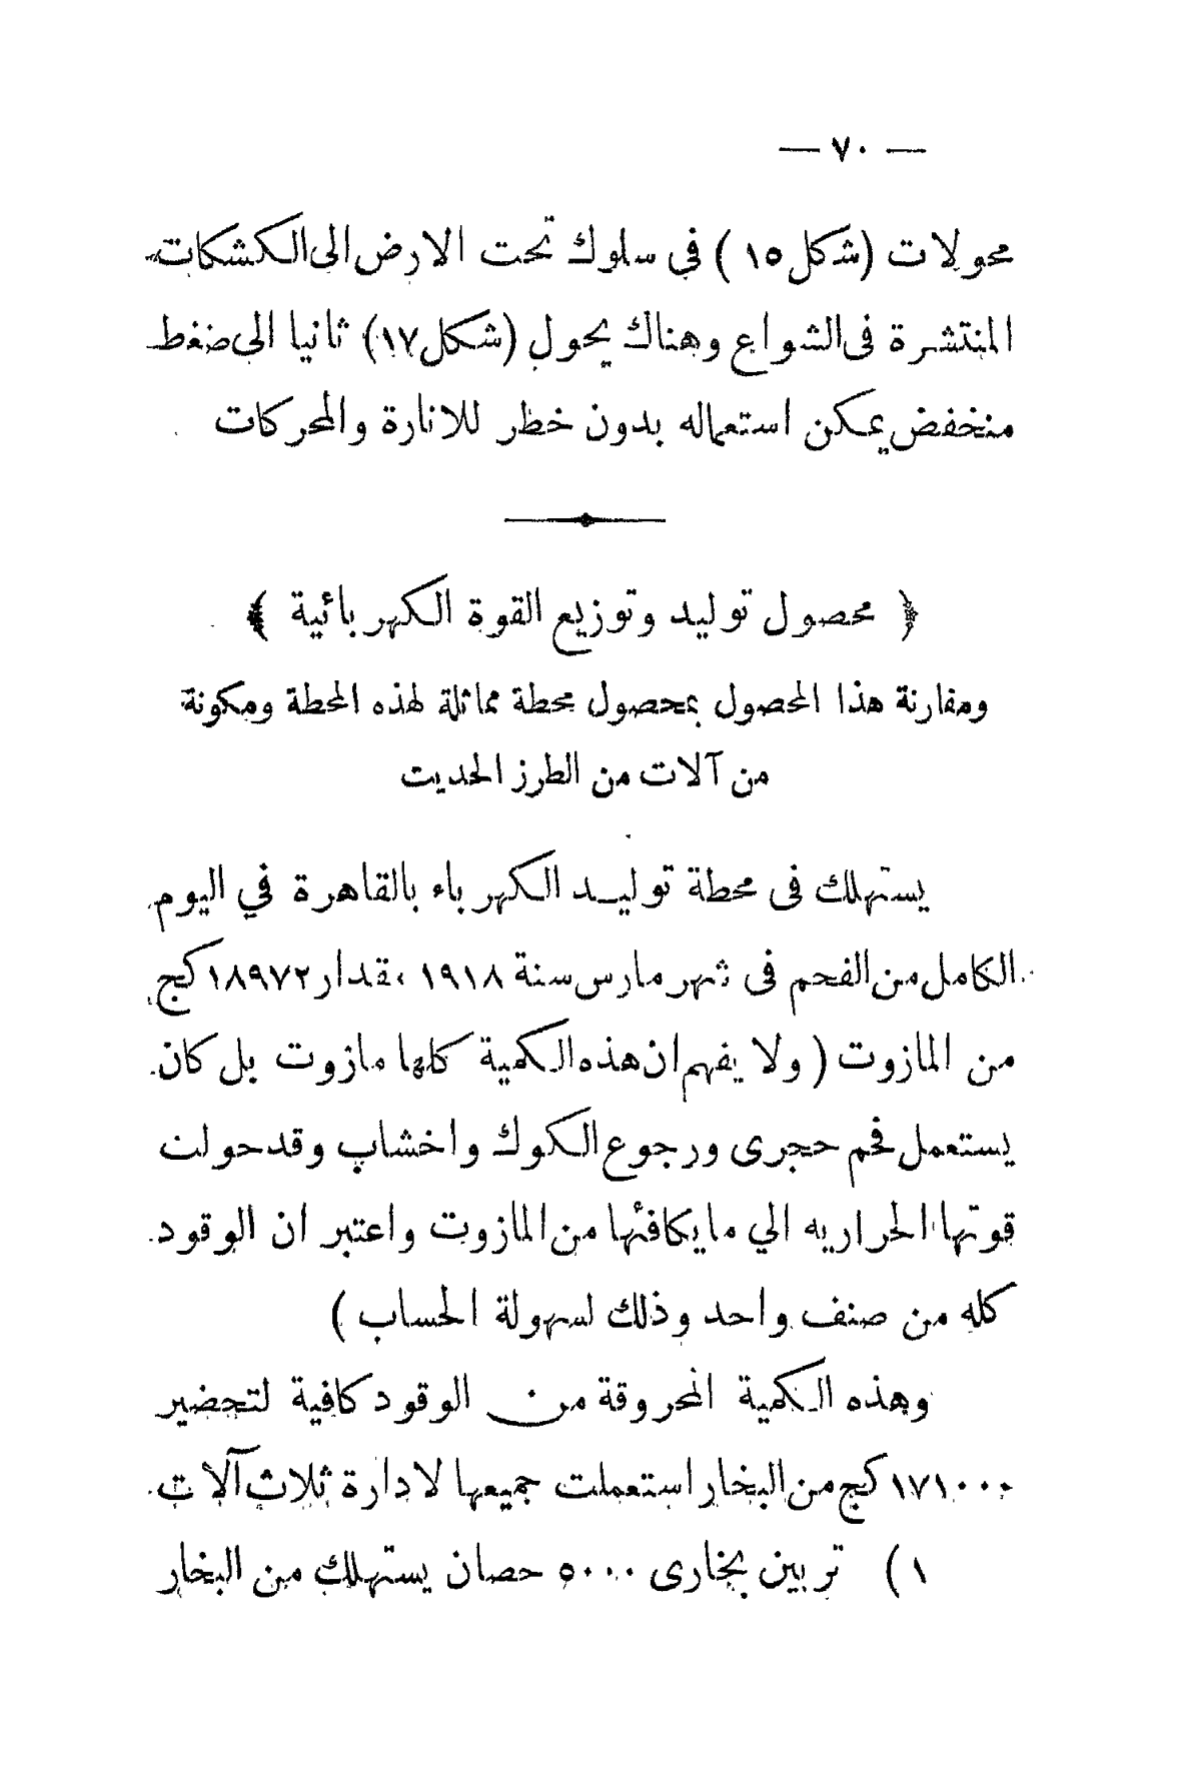 — ٧٠ —
محولات (شكل ١٥ ) فى سلوك تحت الارض الى الكشكات
المنتشرة فى الشوارع وهناك يحول (شكل ١٧) ثانيا الى ضغط
منخفض يمكن استعماله بدون خطر للانارة والمحركات
﴿ محصول توليد وتوزيع القوة الكهربائية ﴾
ومقارنة هذا المحصول بمحصول محطة مماثلة لهذه المحطة ومكونة
من آلات من الطرز الحديت
يستهلك فى محطة توليد الكهرباء بالقاهرة في اليوم
الكامل من الفحم فى شهر مارس سنة ١٩١٨ مقدار ١٨٩٧٢ كج
من المازوت ( ولا يفهم ان هذه الكمية كلها مازوت بل كان
يستعمل فحم حجرى ورجوع الكوك واخشاب وقد حولت
قوتها الحراريه الي ما يكافئها من المازوت واعتبر ان الوقود
كله من صنف واحد وذلك لسهولة الحساب )
وهذه الكمية المحروقة من الوقود كافية لتحضير
١٧١٠٠٠ كج من البخار استعملت جميعها لادارة ثلاث آلات
١ ) تربين بخارى ٥٠٠٠ حصان يستهلك من البخار